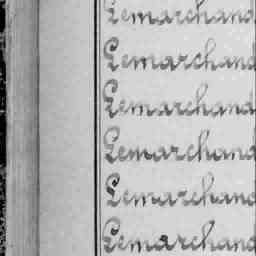 Lemarchand
Lemarchand
Lemarchand
Lemarchand
Lemarchand
Lemarchand